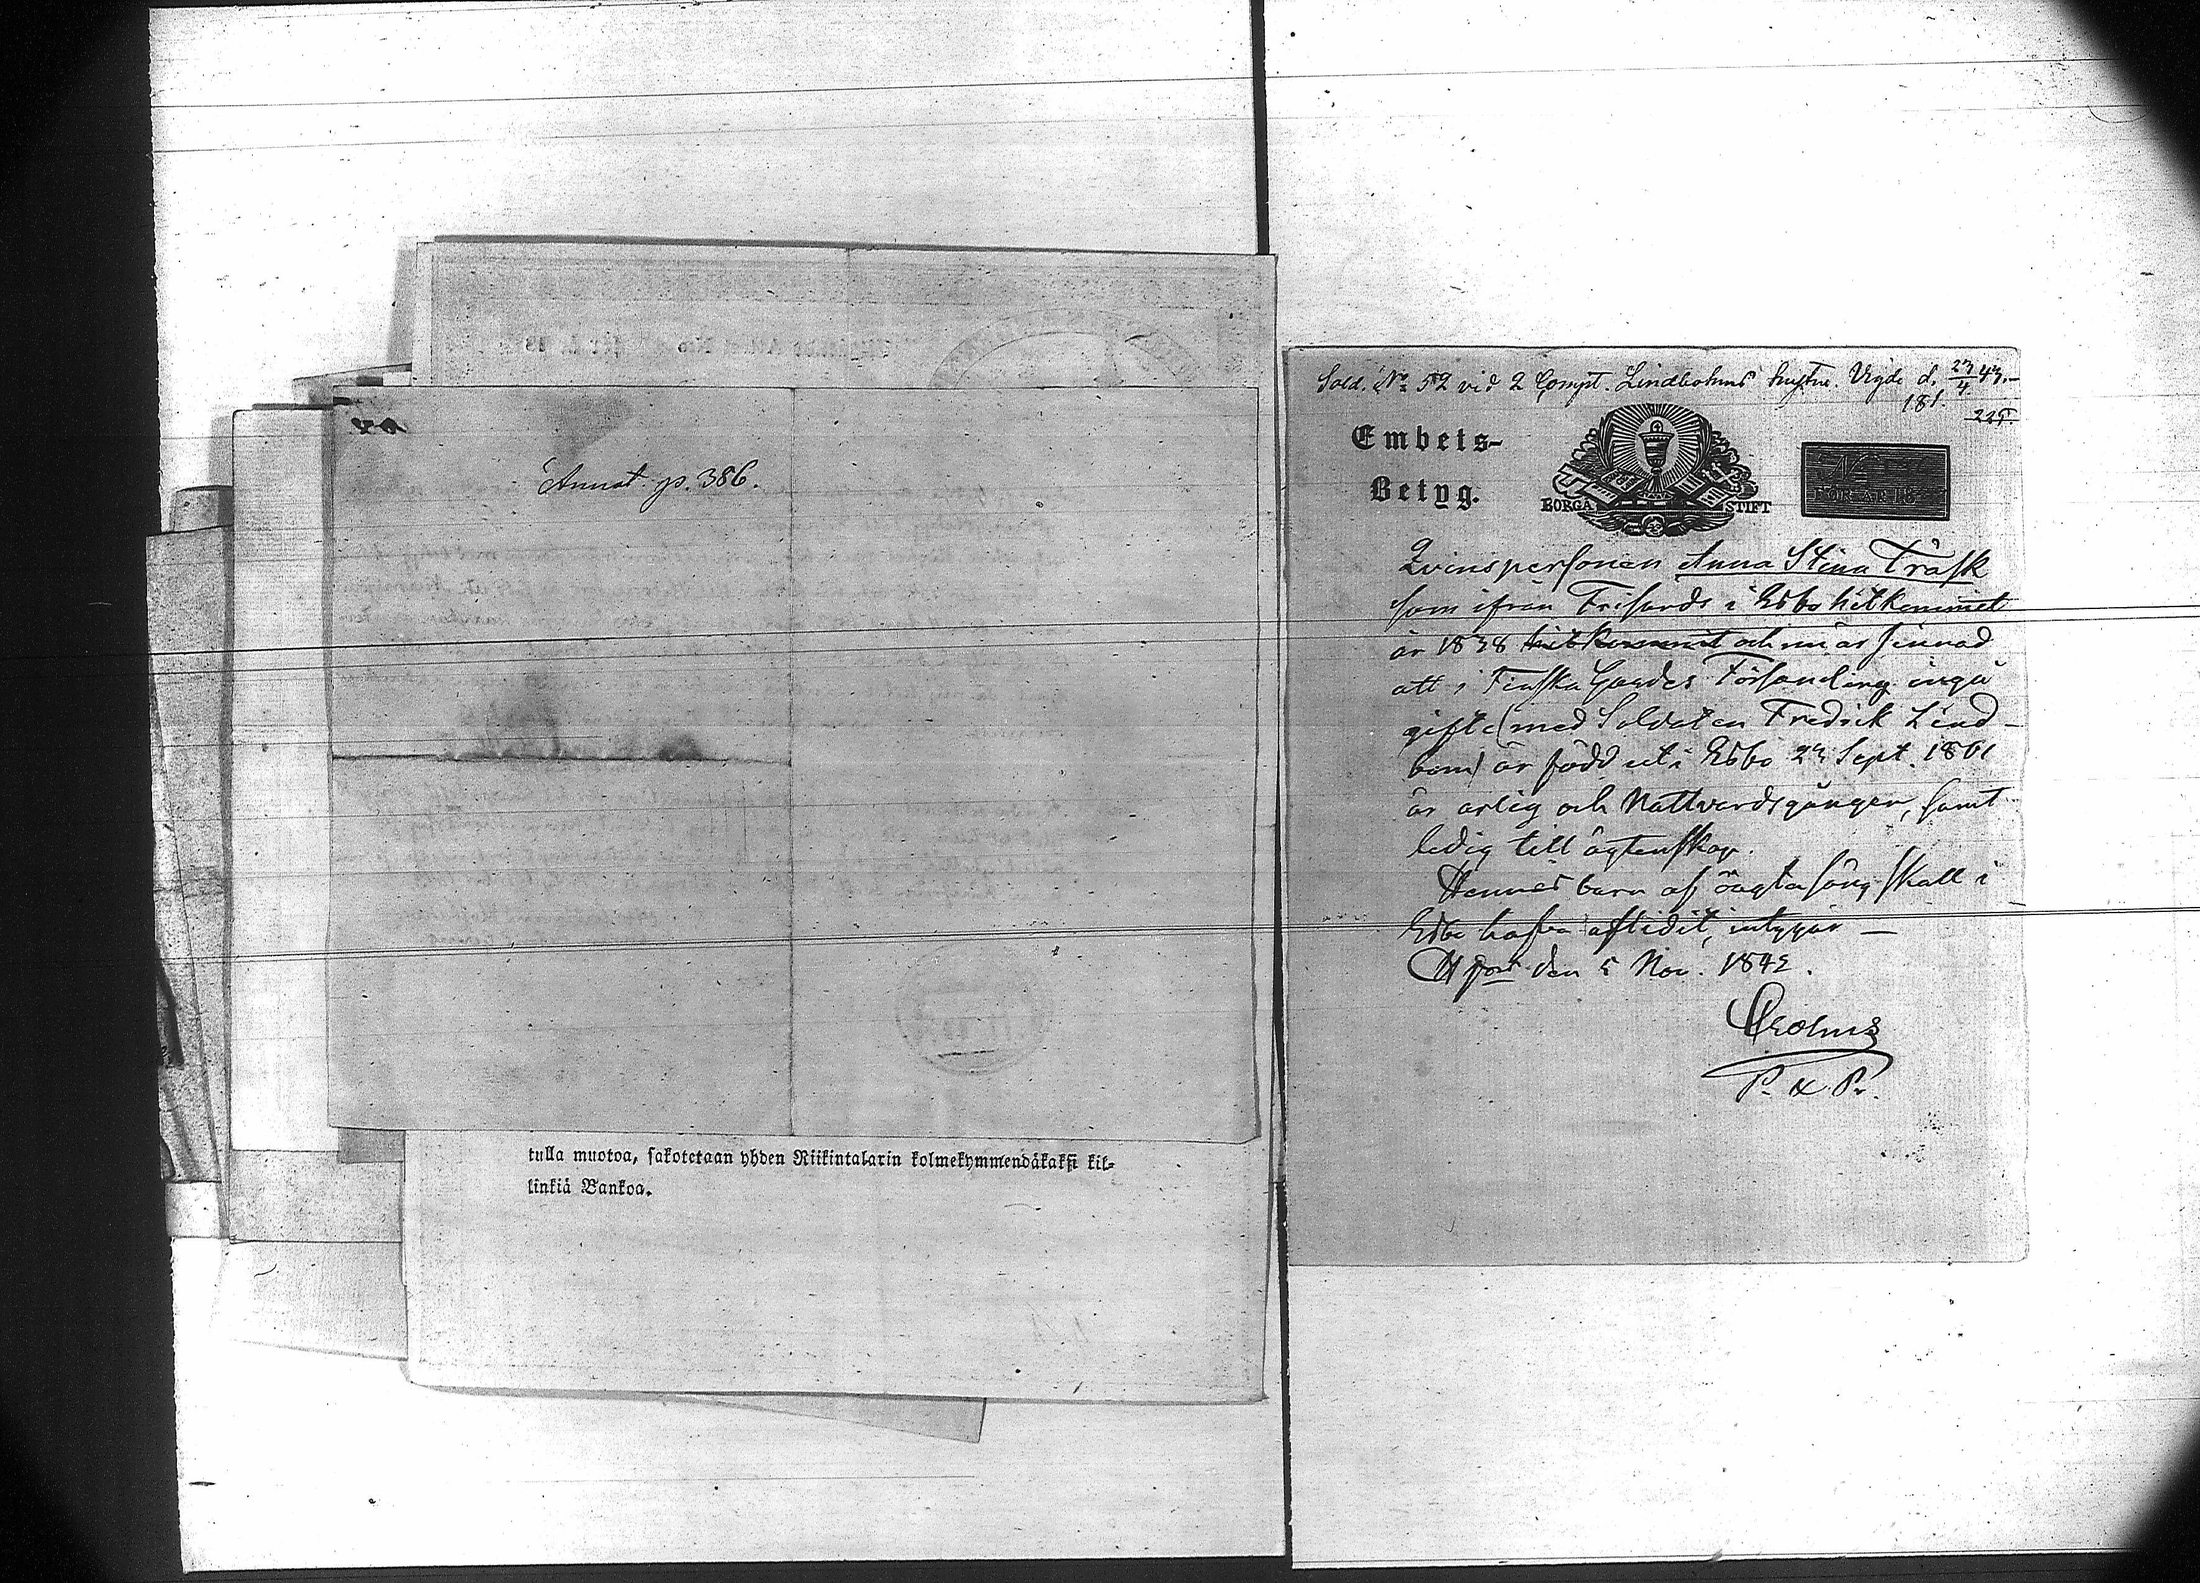 Annot. p. 386.
tulla muotoa, sakotetaan yhden Riikintalarin kolmekymmendäkaksi kil-
linkiä Bankoa.
Sold. No 52 vid 2 Compt. Lindbohms hustru. Vigde d. 23/4 43.
181.
225.
Embets-
Betyg.
BORGÅ STIFT
No
FÖR ÅR 18
Qvinspersonen Anna Stina Träsk
som ifrån Frisands i Esbo hitkommit
år 1838 hitkommit och nu är sinnad
att i Finska Gardes Församling ingå
gifte (med Soldaten Fredrik Lind-
bom) är född uti Esbo 23 Sept. 1801
är ärlig och Nattvardsgången, samt
ledig till ägtenskap.
Hennes barn af oägta säng skall i
Esbo hafva aflidit, intygar —
H fors den 5 Nov. 1842.
P. & Pr.